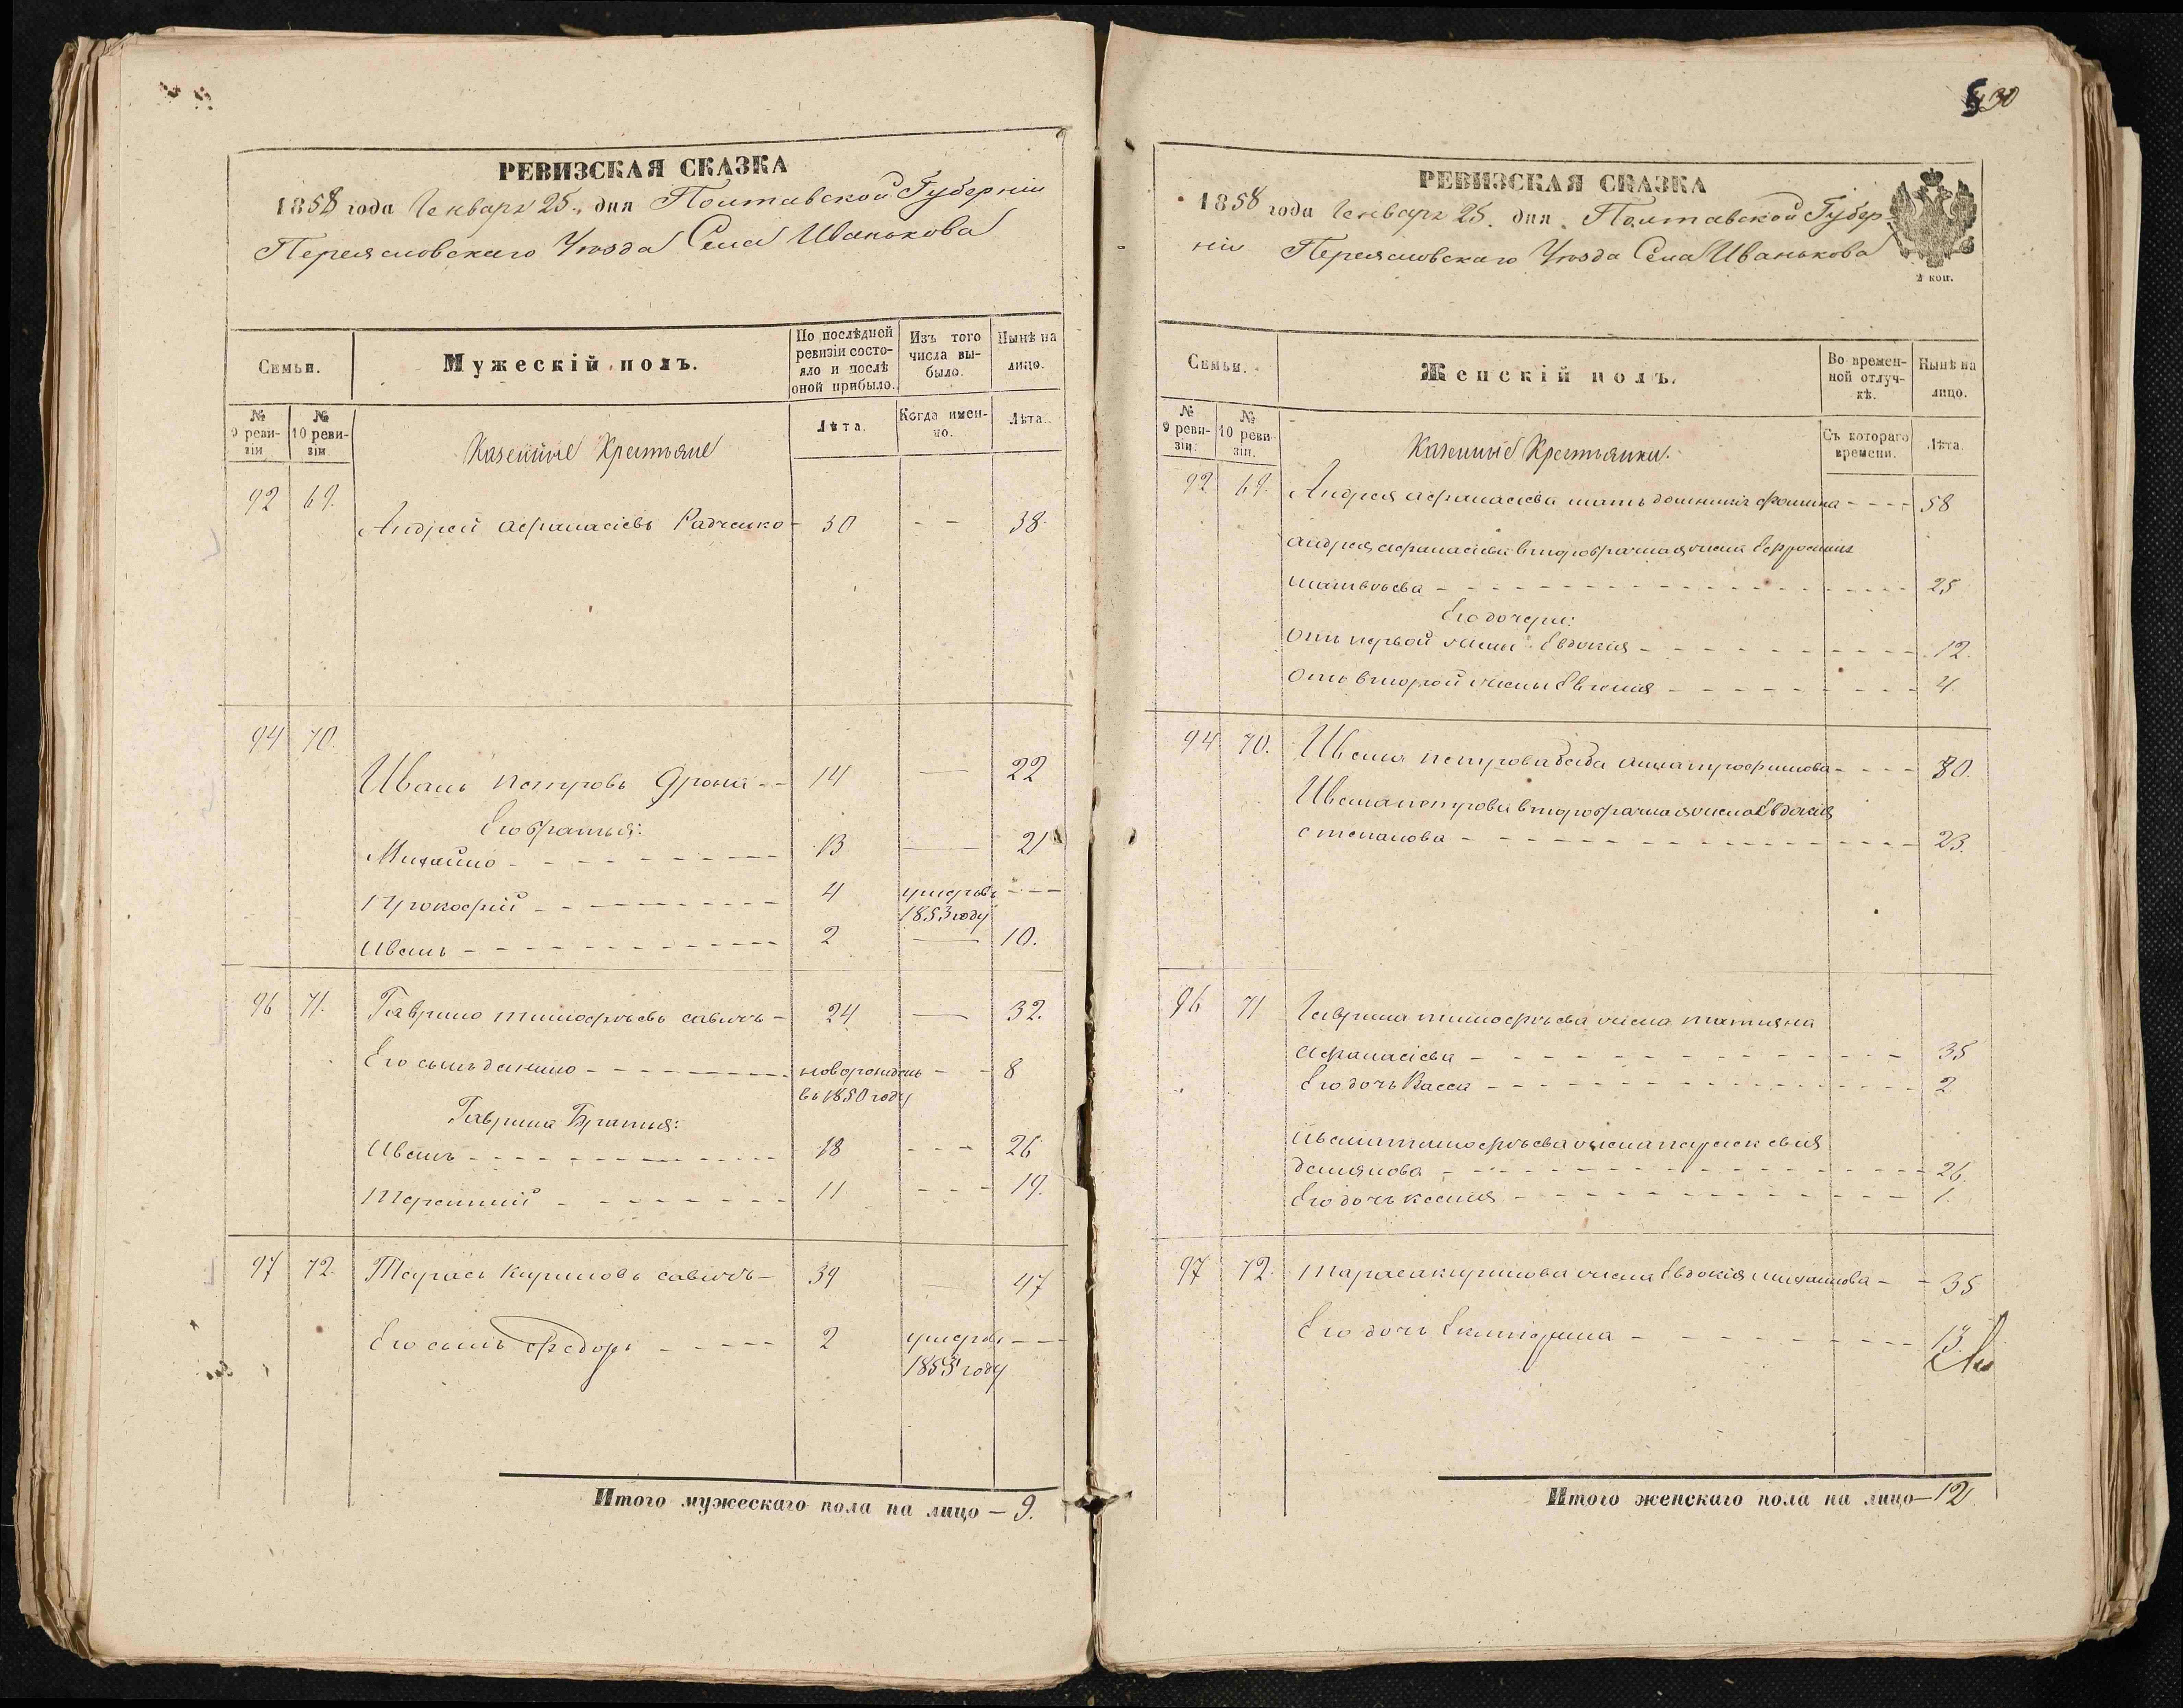 РЕВИЗСКАЯ СКАЗКА
1858 года Генваря 25. дня Полтавской Губерніи
Переяславскаго Уѣзда Села Иванькова
Семьи.
Мужескій полъ.
По послѣдней ревизіи состояло и послѣ оной прибыло.
Изъ того числа выбыло.
Нынѣ на лицо.
№ 9 ревизіи
№ 10 ревизіи
Казенные Крестьяне
Лѣта.
Когда именно.
Лѣта.
92 69. Андрей Афанасіевъ Радченко - 30 - - 38.
94 70.
Иванъ Петровъ Дрона - - 14 — 22
Его братья:
Михайло - 13 — 21
Прокофій - 4 умеръ въ - - -
1853 году
Иванъ - 2 — 10.
96 71. Гаврило Тимофѣевъ Савичъ - 24 — 32.
Его сынъ Данило - новорожденъ - - 8
въ 1850 году
Гаврила Братья:
Иванъ - 18 - - - 26
Терентій - 11 - - - 19.
97 72. Тарасъ Кириловъ Савичъ - 39 — 47
Его сынъ Федоръ - 2 умеръ въ - - -
1855 году
Итого мужескаго пола на лицо — 9.
30
РЕВИЗСКАЯ СКАЗКА
1858 года Генваря 25. дня. Полтавской Губер-
ніи Переяславскаго Уѣзда Села Иванькова
2 коп.
Семьи.
Женскій полъ.
Во временной отлучкѣ.
Нынѣ на лицо.
№ 9 ревизіи.
№ 10 ревизіи.
Казенные Крестьянки.
Съ котораго времени.
Лѣта.
92 69. Андрея Афанасіева мать Домникія Фомина - - - - 58
Андрея Афанасіева второбрачная жена Ефросинія
Матвѣева - 25
Его дочери:
Отъ первой жены Евдокія - 12.
Отъ второй жены Евгенія - 4.
94 70. Ивана Петрова баба Анна Трофимова - - - - 80.
Ивана Петрова второбрачная жена Евдокія
Степанова - 23.
96 71 Гаврила Тимофѣева жена Татияна
Афанасіева - 35
Его дочь Васса - 2
Ивана Тимофѣева жена Параскевія
Демянова - 26.
Его дочь Ксенія - 1.
97 72. Тараса Кирилова жена Евдокія Михайлова - - 35
Его дочь Екатерина - 13.
Итого женскаго пола на лицо — 12